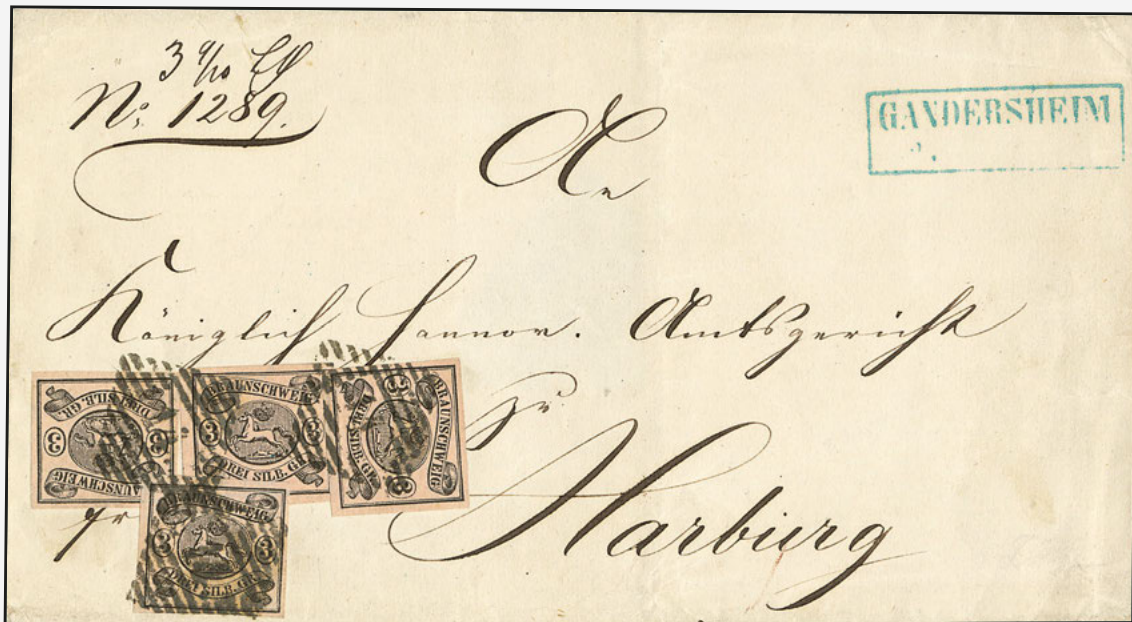 3 9/10
No. 1289.
GANDERSHEIM
An
Königlich Hannov. Amtsgericht
zu
Harburg
BRAUNSCHWEIG
3 3
DREI SILB. GR.
BRAUNSCHWEIG
3 3
DREI SILB. GR.
BRAUNSCHWEIG
3 3
DREI SILB. GR.
BRAUNSCHWEIG
3 3
DREI SILB. GR.